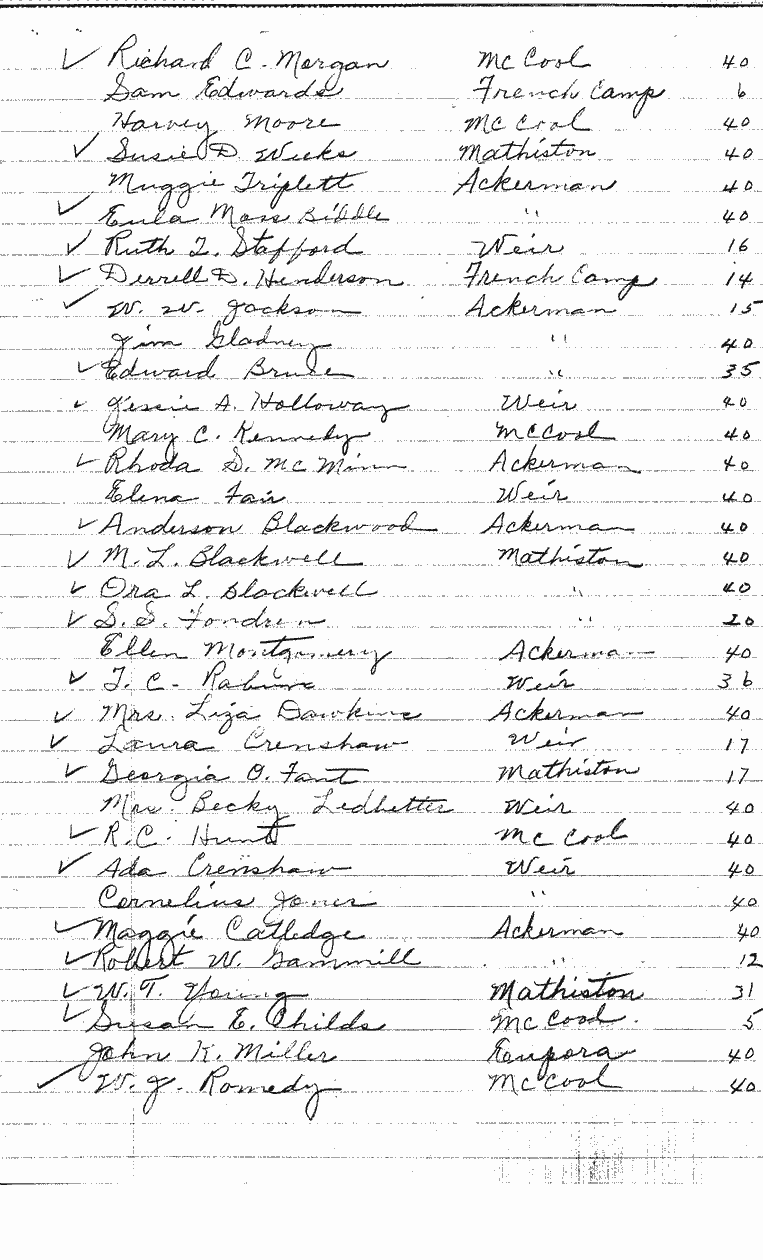 ✓ Richard C. Morgan McCool 40
Sam Edwards French Camp 6
Harvey Moore McCool 40
✓ Susie D. Weeks Mathiston 40
Muggie Triplett Ackerman 40
✓ Eula Moss Biddle " 40
✓ Ruth L. Stafford Weir 16
✓ Derrell D. Henderson French Camp 14
✓ W. W. Jackson Ackerman 15
Jim Gladney " 40
✓ Edward Bruce " 35
✓ Jessie A. Holloway Weir 40
Mary C. Kennedy McCool 40
✓ Rhoda S. McMinn Ackerman 40
Elena Fair Weir 40
✓ Anderson Blackwood Ackerman 40
✓ M. L. Blackwell Mathiston 40
✓ Ora L. Blackwell " 40
✓ S. S. Fondren " 20
Ellen Montgomery Ackerman 40
✓ T. C. Weir 36
✓ Mrs. Liza Dawkins Ackerman 40
✓ Laura Crenshaw Weir 17
✓ Georgia O. Fant Mathiston 17
Mrs. Becky Ledbetter Weir 40
✓ R. C. Hunt McCool 40
✓ Ada Crenshaw Weir 40
Cornelius Jones " 40
✓ Maggie Catledge Ackerman 40
✓ Robert W. Gammill " 12
✓ W. T. Young Mathiston 31
✓ Susan E. Childs McCool. 5
John K. Miller Eupora 40
✓ W. J. Romedy McCool 40